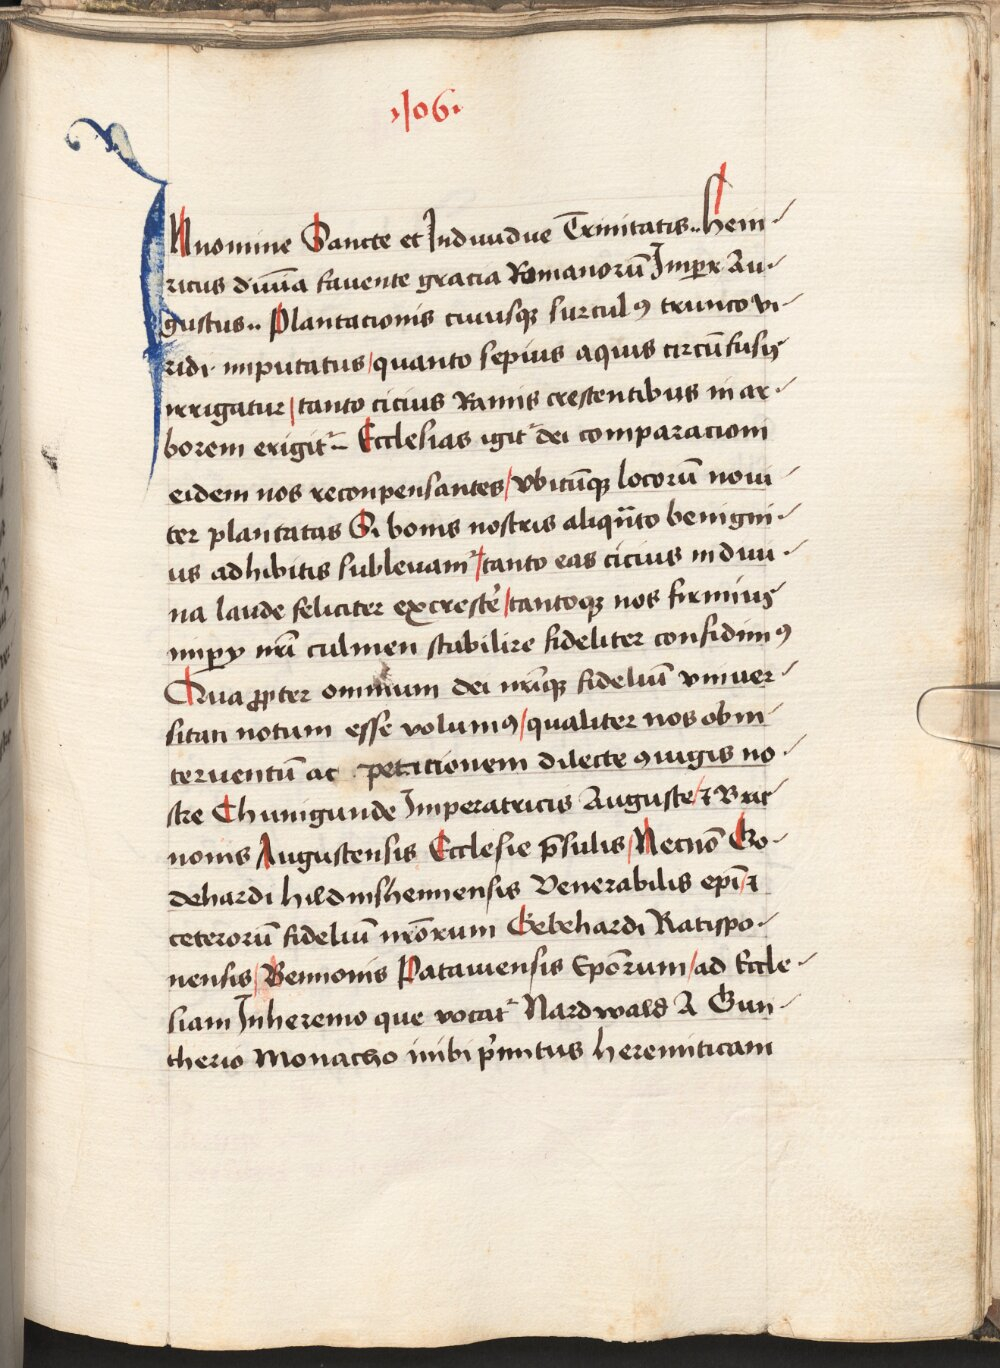 ·106·
INnomine Sancte et Indiuidue Trinitatis.. Hein-
ricus diuı̄a fauente gracia Romanorū Imper Au-
gustus.. Plantacionis cuiusqꝫ surculꝰ trunco vi-
ridi imputatus / quanto sepius aquis circūfusis
irrigatur / tanto cicius Ramis crescentibus in ar-
borem erigit᷑.. Ecclesias igit᷑ dei comparacioni
eidem nos reconpensantes / vbicūqꝫ locorū noui-
ter plantatas Si bonis nostris aliqūto benigni-
us adhibitis subleuam᷑ / tanto eas cicius in diui-
na laude feliciter excrescẽ / tantoqꝫ nos firmius
impery nrı̄ culmen stabilire fideliter confidimꝰ
Qua ꝓpter omnium dei nrı̄qꝫ fideliū vniuer-
sitati notum esse volumꝰ / qualiter nos ob in-
teruentū ac petitionem dilecte ꝯiugis no-
stre Chunigunde Imperatricis Auguste / ⁊ Bru-
nonis Augustensis Ecclesie p̄sulis / Necnō Go-
dehardi hildinshemensis Venerabilis epı̄ / ⁊
ceterorū fideliū nrōrum Gebehardi Ratispo-
nensis / Bennonis Patauiensis Epōrum / ad Eccle-
siam Inheremo que vocat᷑ Nardwald A Gun-
therio Monacho inibi p̄mitus heremiticam